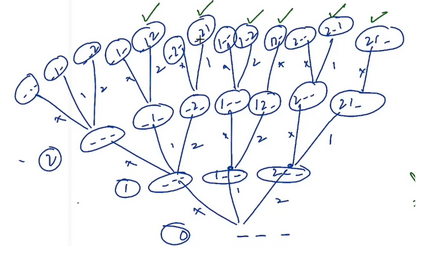 --- --2 -1- -12 -2- -21 1-- 1-2 12- 2-- 2-1 21-
x 1 2 x 2 x 1 x 2 x x 1 x
--- -1- -2- 1-- 12- 2-- 21-
2 x 1 2 x 2 x 1
1 --- 1-- 2--
x 1 2
0 _ _ _